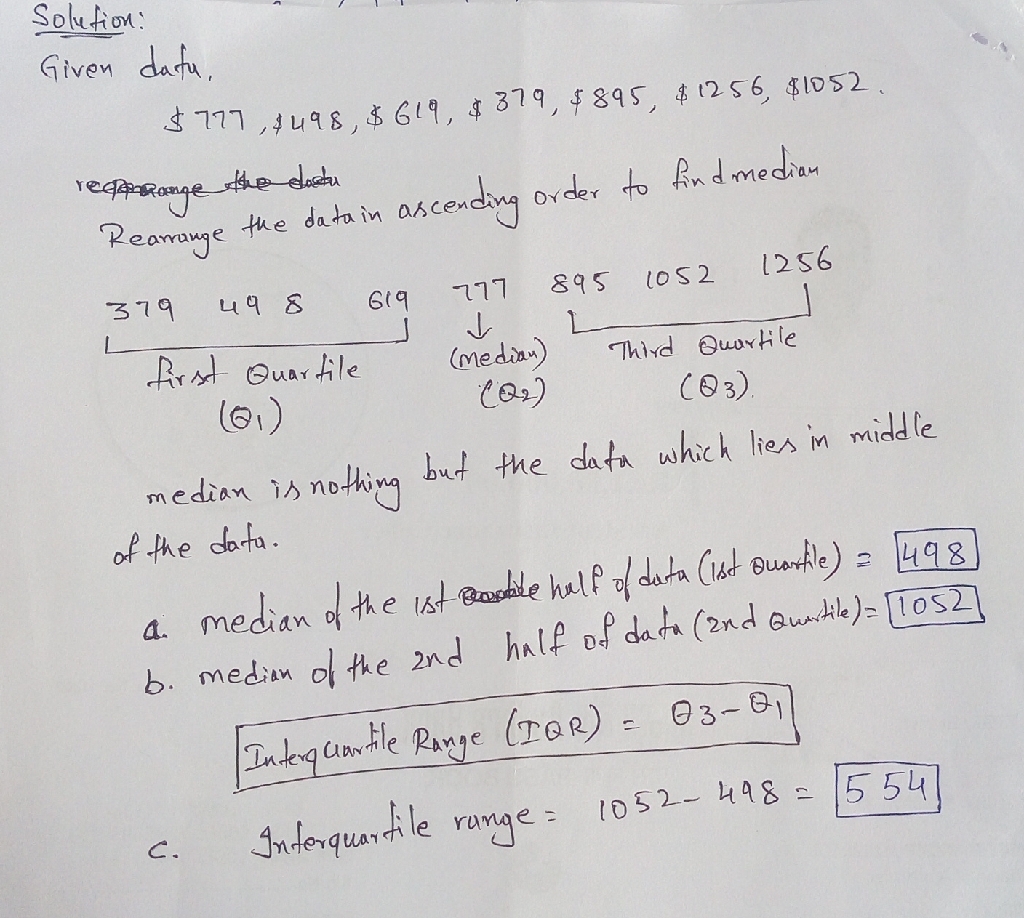 Solution:
Given data,
$777, $498, $619, $379, $895, $1256, $1052.
Rearrange the data in ascending order to find median
379 498 619 777 895 1052 1256
first Quartile (median) Third Quartile
(Q1) (Q2) (Q3).
median is nothing but the data which lies in middle
of the data.
a. median of the 1st half of data (1st Quartile) = 498
b. median of the 2nd half of data (2nd Quartile) = 1052
Interquartile Range (IQR) = Q3-Q1
c. Interquartile range = 1052-498 = 554